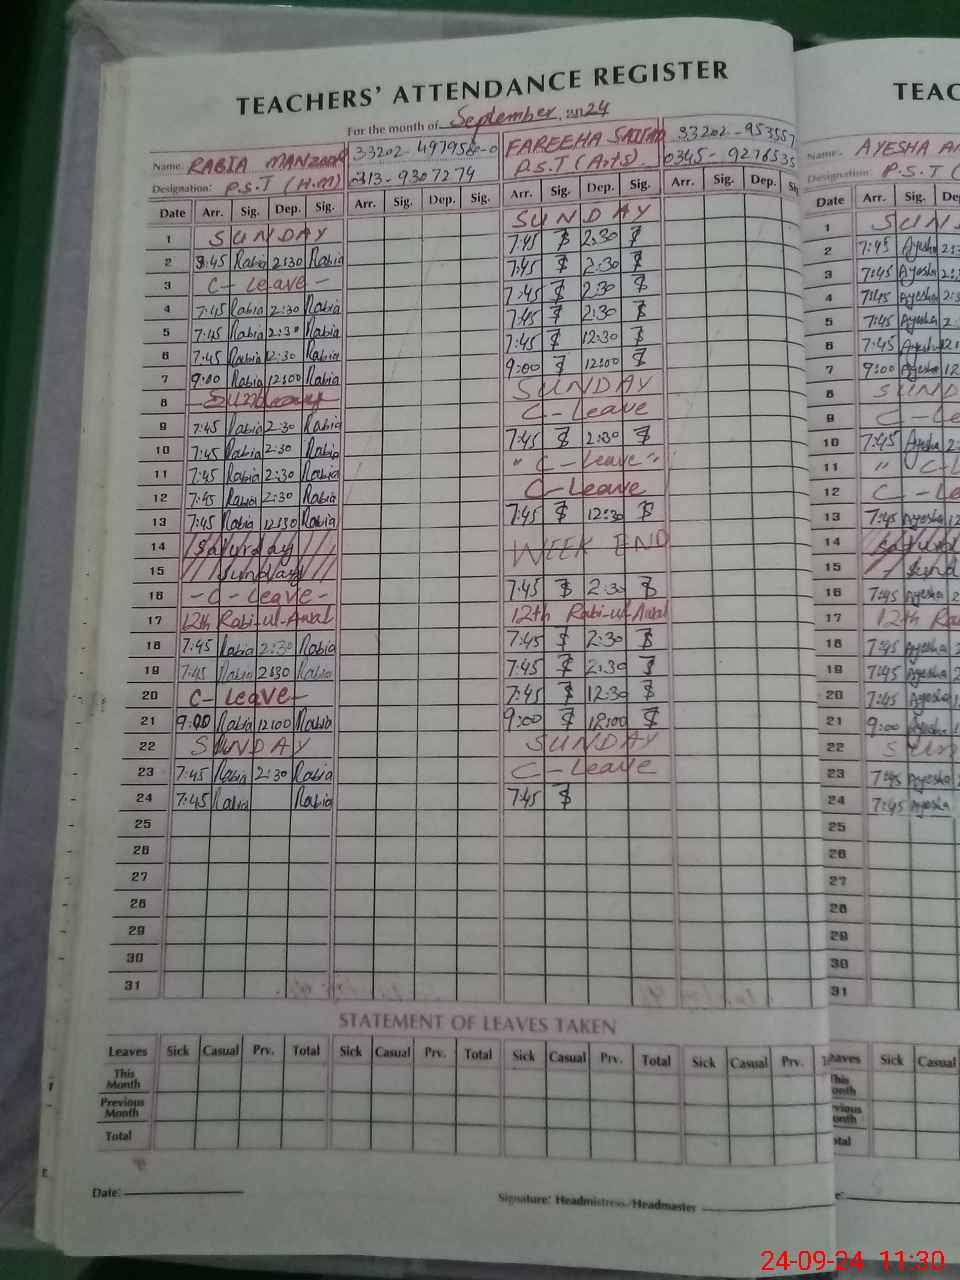 TEACHERS' ATTENDANCE REGISTER
TEAC
For the month of September, 2024
Name. RABIA MANZOOR 33202-4979560-0 FAREEHA 33202-953557
Name. AYESHA
Designation: P.S.T (H.M) 0313-9307274 P.S.T (Arts). 0345-9276535
Designation: P.S
Date Arr. Sig. Dep. Sig. Arr. Sig. Dep. Sig. Arr. Sig. Dep. Sig. Arr. Sig. Dep. Si
Date Arr. Sig. De
1 SUNDAY SUNDAY
1 SUN
2 8:45 Rabia 2:30 Rabia 7:45 2:30
2 7:45 Ayesha 2:
3 C-Leave- 7:45 2:30
3 7:45 Ayesha
4 7:45 Rabia 2:30 Rabia 7:45 2:30
4 7:45 Ayesha
5 7:45 Rabia 2:30 Rabia 7:45 2:30
5 7:45 Ayesha
6 7:45 Rabia 2:30 Rabia 7:45 12:30
6 7:45 Ayesha 12
7 9:00 Rabia 12:00 Rabia 9:00 12:00
7 9:00 Ayesha 12
8 Sunday SUNDAY
8 SUND
9 7:45 Rabia 2:30 Rabia C-Leave
9 C-Le
10 7:45 Rabia 2:30 Rabia 7:45 2:30
10 7:45 Ayesha
11 7:45 Rabia 2:30 Rabia " C-Leave "
11 " C-L
12 7:45 Rabia 2:30 Rabia C-Leave
12 C-Le
13 7:45 Rabia 12:30 Rabia 7:45 12:30
13 7:45 Ayesha 12
14 Saturday WEEK END
14 Satur
15 Sunday
15 Sund
16 -C-Leave- 7:45 2:30
16 7:45 Ayesha 2
17 12th Rabi-ul-Awal 12th Rabi-ul-Awal
17 12th Ra
18 7:45 Rabia 2:30 Rabia 7:45 2:30
18 7:45 Ayesha 2
19 7:45 Rabia 2:30 Rabia 7:45 2:30
19 7:45 Ayesha 2
20 C-Leave- 7:45 12:30
20 7:45 Ayesha
21 9:00 Rabia 12:00 Rabia 9:00 12:00
21 9:00 Ayesha
22 SUNDAY SUNDAY
22 SUN
23 7:45 Rabia 2:30 Rabia C-Leave
23 7:45 Ayesha
24 7:45 Rabia Rabia 7:45
24 7:45 Ayesha
25
25
26
26
27
27
28
28
29
29
30
30
31
31
STATEMENT OF LEAVES TAKEN
Leaves Sick Casual Prv. Total Sick Casual Prv. Total Sick Casual Prv. Total Sick Casual Prv. T
eaves Sick Casual
This Month
This onth
Previous Month
vious onth
Total
tal
Date:
Signature: Headmistress/Headmaster
e:
24-09-24 11:30